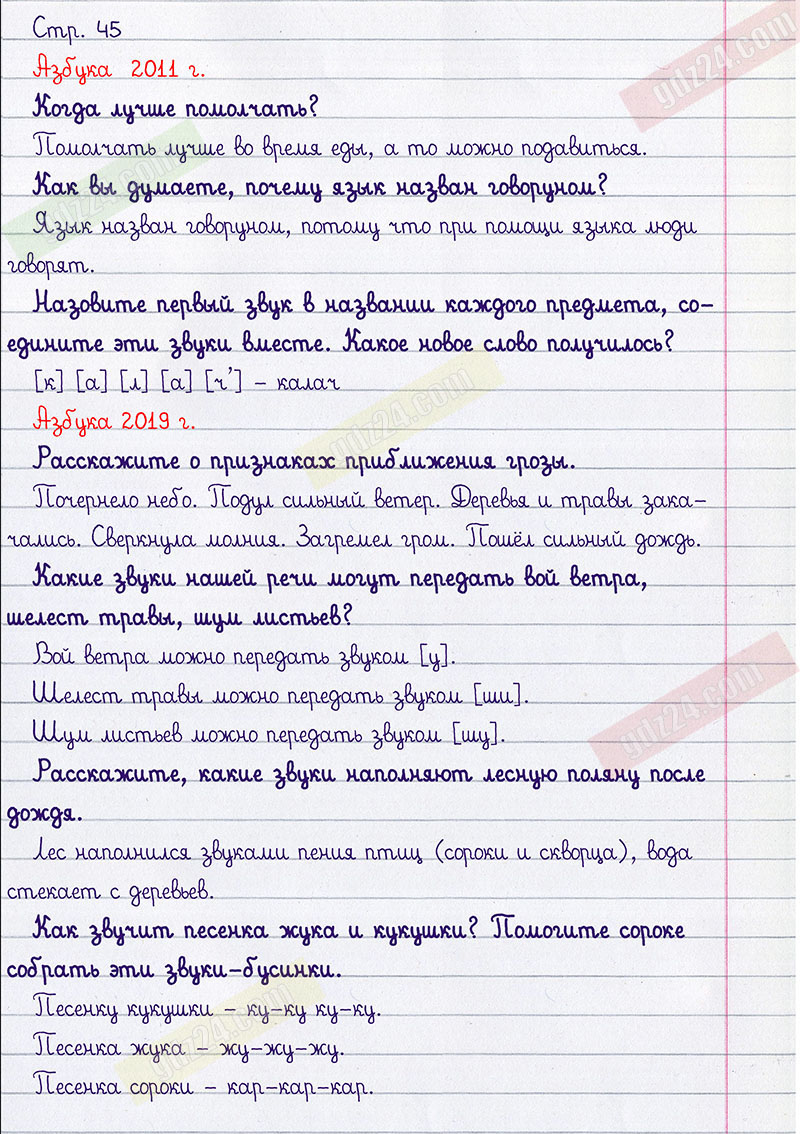 Стр. 45
Азбука 2011 г.
Когда лучше помолчать?
Помолчать лучше во время еды, а то можно подавиться.
Как вы думаете, почему язык назван говоруном?
Язык назван говоруном, потому что при помощи языка люди
говорят.
Назовите первый звук в названии каждого предмета, со-
едините эти звуки вместе. Какое новое слово получилось?
[к] [а] [л] [а] [ч'] – калач
Азбука 2019 г.
Расскажите о признаках приближения грозы.
Почернело небо. Подул сильный ветер. Деревья и травы зака-
чались. Сверкнула молния. Загремел гром. Пошёл сильный дождь.
Какие звуки нашей речи могут передать вой ветра,
шелест травы, шум листьев?
Вой ветра можно передать звуком [у].
Шелест травы можно передать звуком [ши].
Шум листьев можно передать звуком [шу].
Расскажите, какие звуки наполняют лесную поляну после
дождя.
Лес наполнился звуками пения птиц (сороки и скворца), вода
стекает с деревьев.
Как звучит песенка жука и кукушки? Помогите сороке
собрать эти звуки-бусинки.
Песенку кукушки – ку-ку ку-ку.
Песенка жука – жу-жу-жу.
Песенка сороки – кар-кар-кар.
gdz24.com
gdz24.com
gdz24.com
gdz24.com
gdz24.com